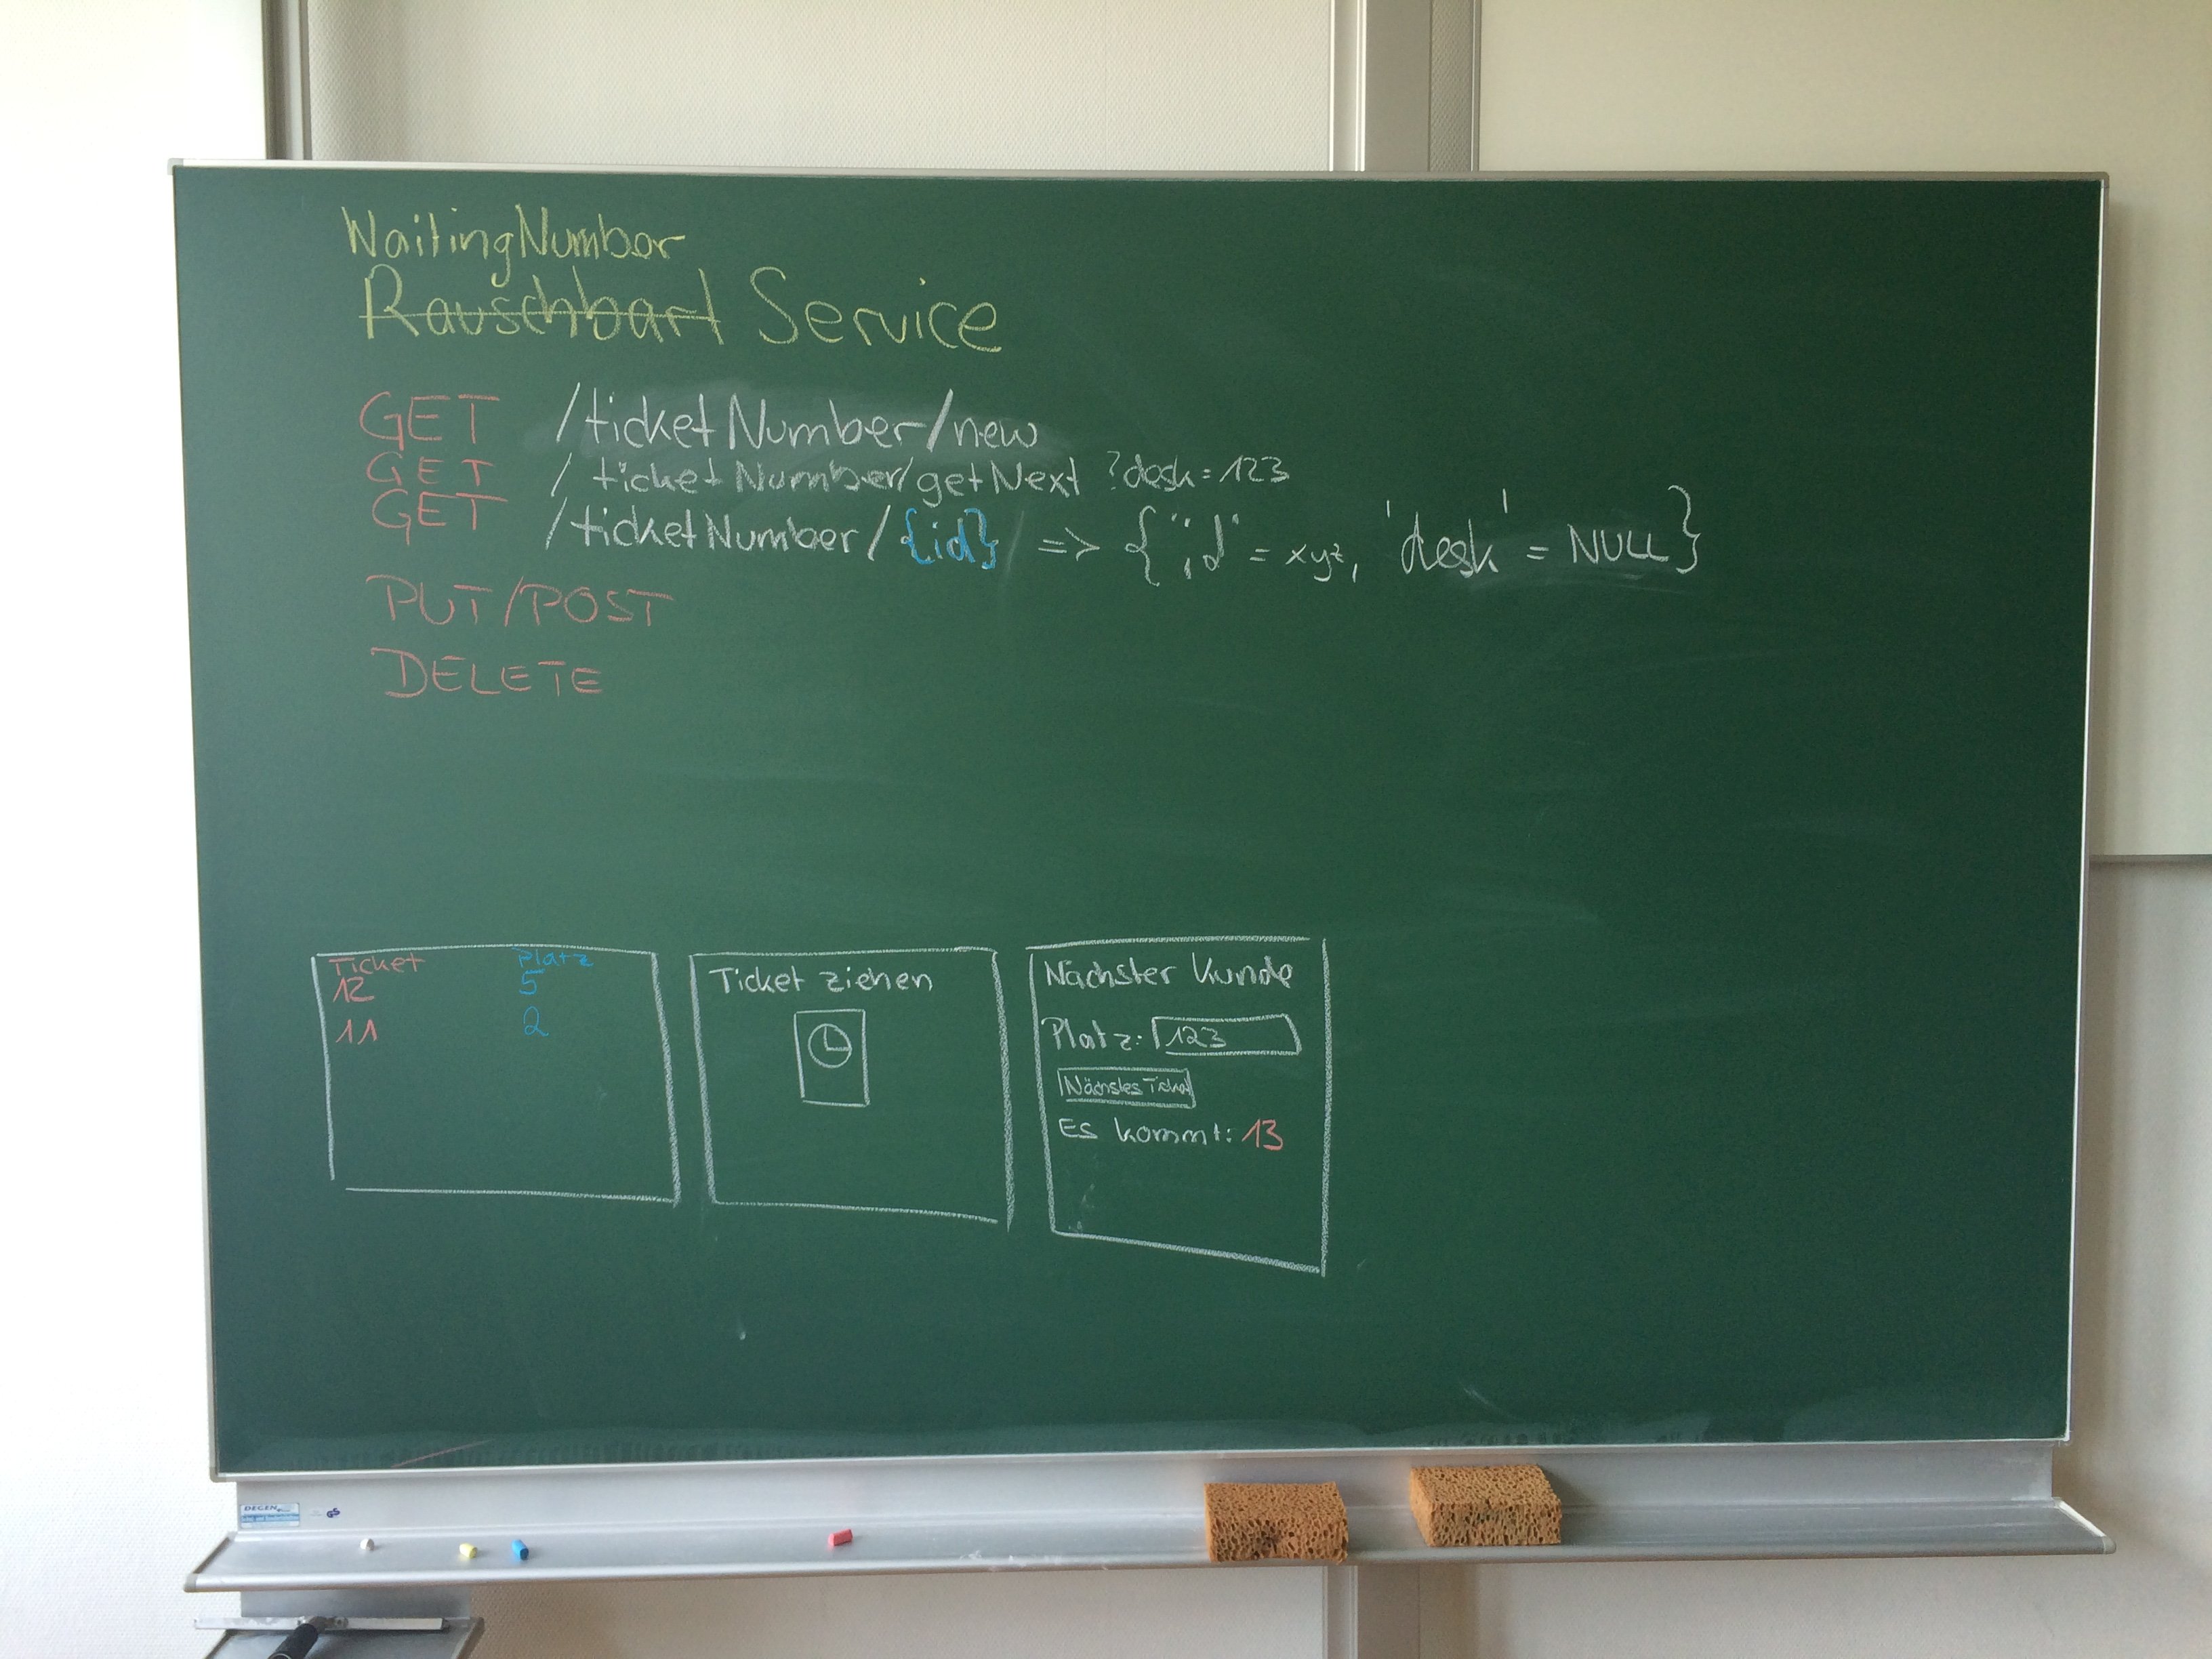 WaitingNumber
Rauschbart Service
GET /ticketNumber/new
GET /ticketNumber/getNext ?desk=123
GET /ticketNumber/{id} => {"id" = xyz, 'desk' = NULL}
PUT/POST
DELETE
Ticket Platz
12 5
11 2
Ticket ziehen
Nächster Kunde
Platz: 123
Nächstes Ticket
Es kommt: 13
DEGEN